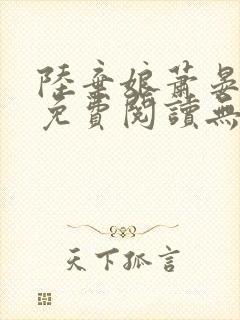 陸棄娘蕭晏
免費閱讀無
天下孤言